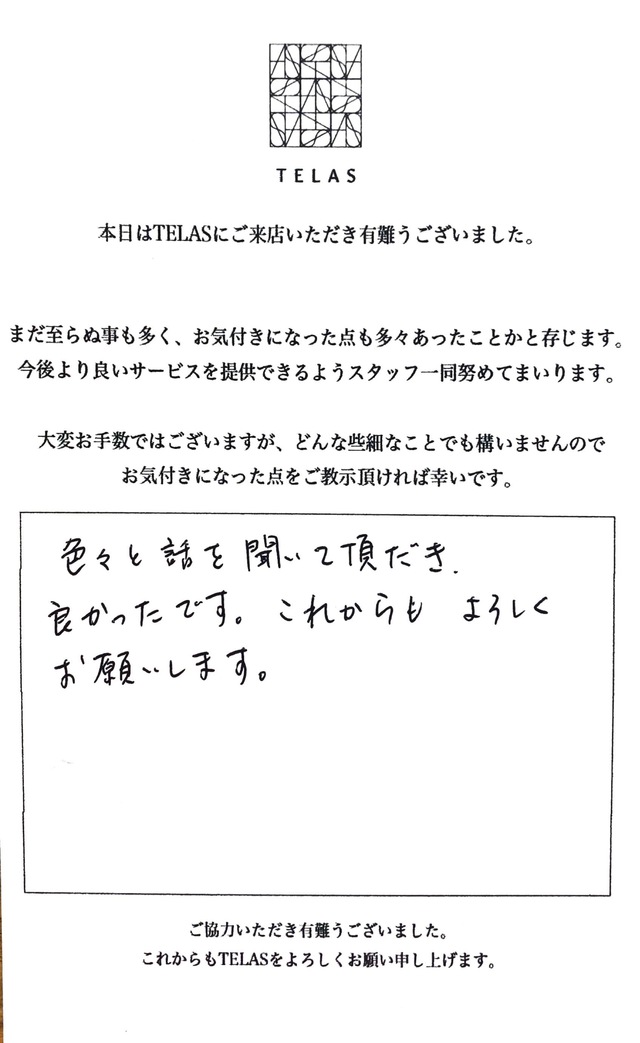 TELAS
本日はTELASにご来店いただき有難うございました。
まだ至らぬ事も多く、お気付きになった点も多々あったことかと存じます。
今後より良いサービスを提供できるようスタッフ一同努めてまいります。
大変お手数ではございますが、どんな些細なことでも構いませんので
お気付きになった点をご教示頂ければ幸いです。
色々と話を聞いて頂だき、
良かったです。これからも よろしく
お願いします。
ご協力いただき有難うございました。
これからもTELASをよろしくお願い申し上げます。